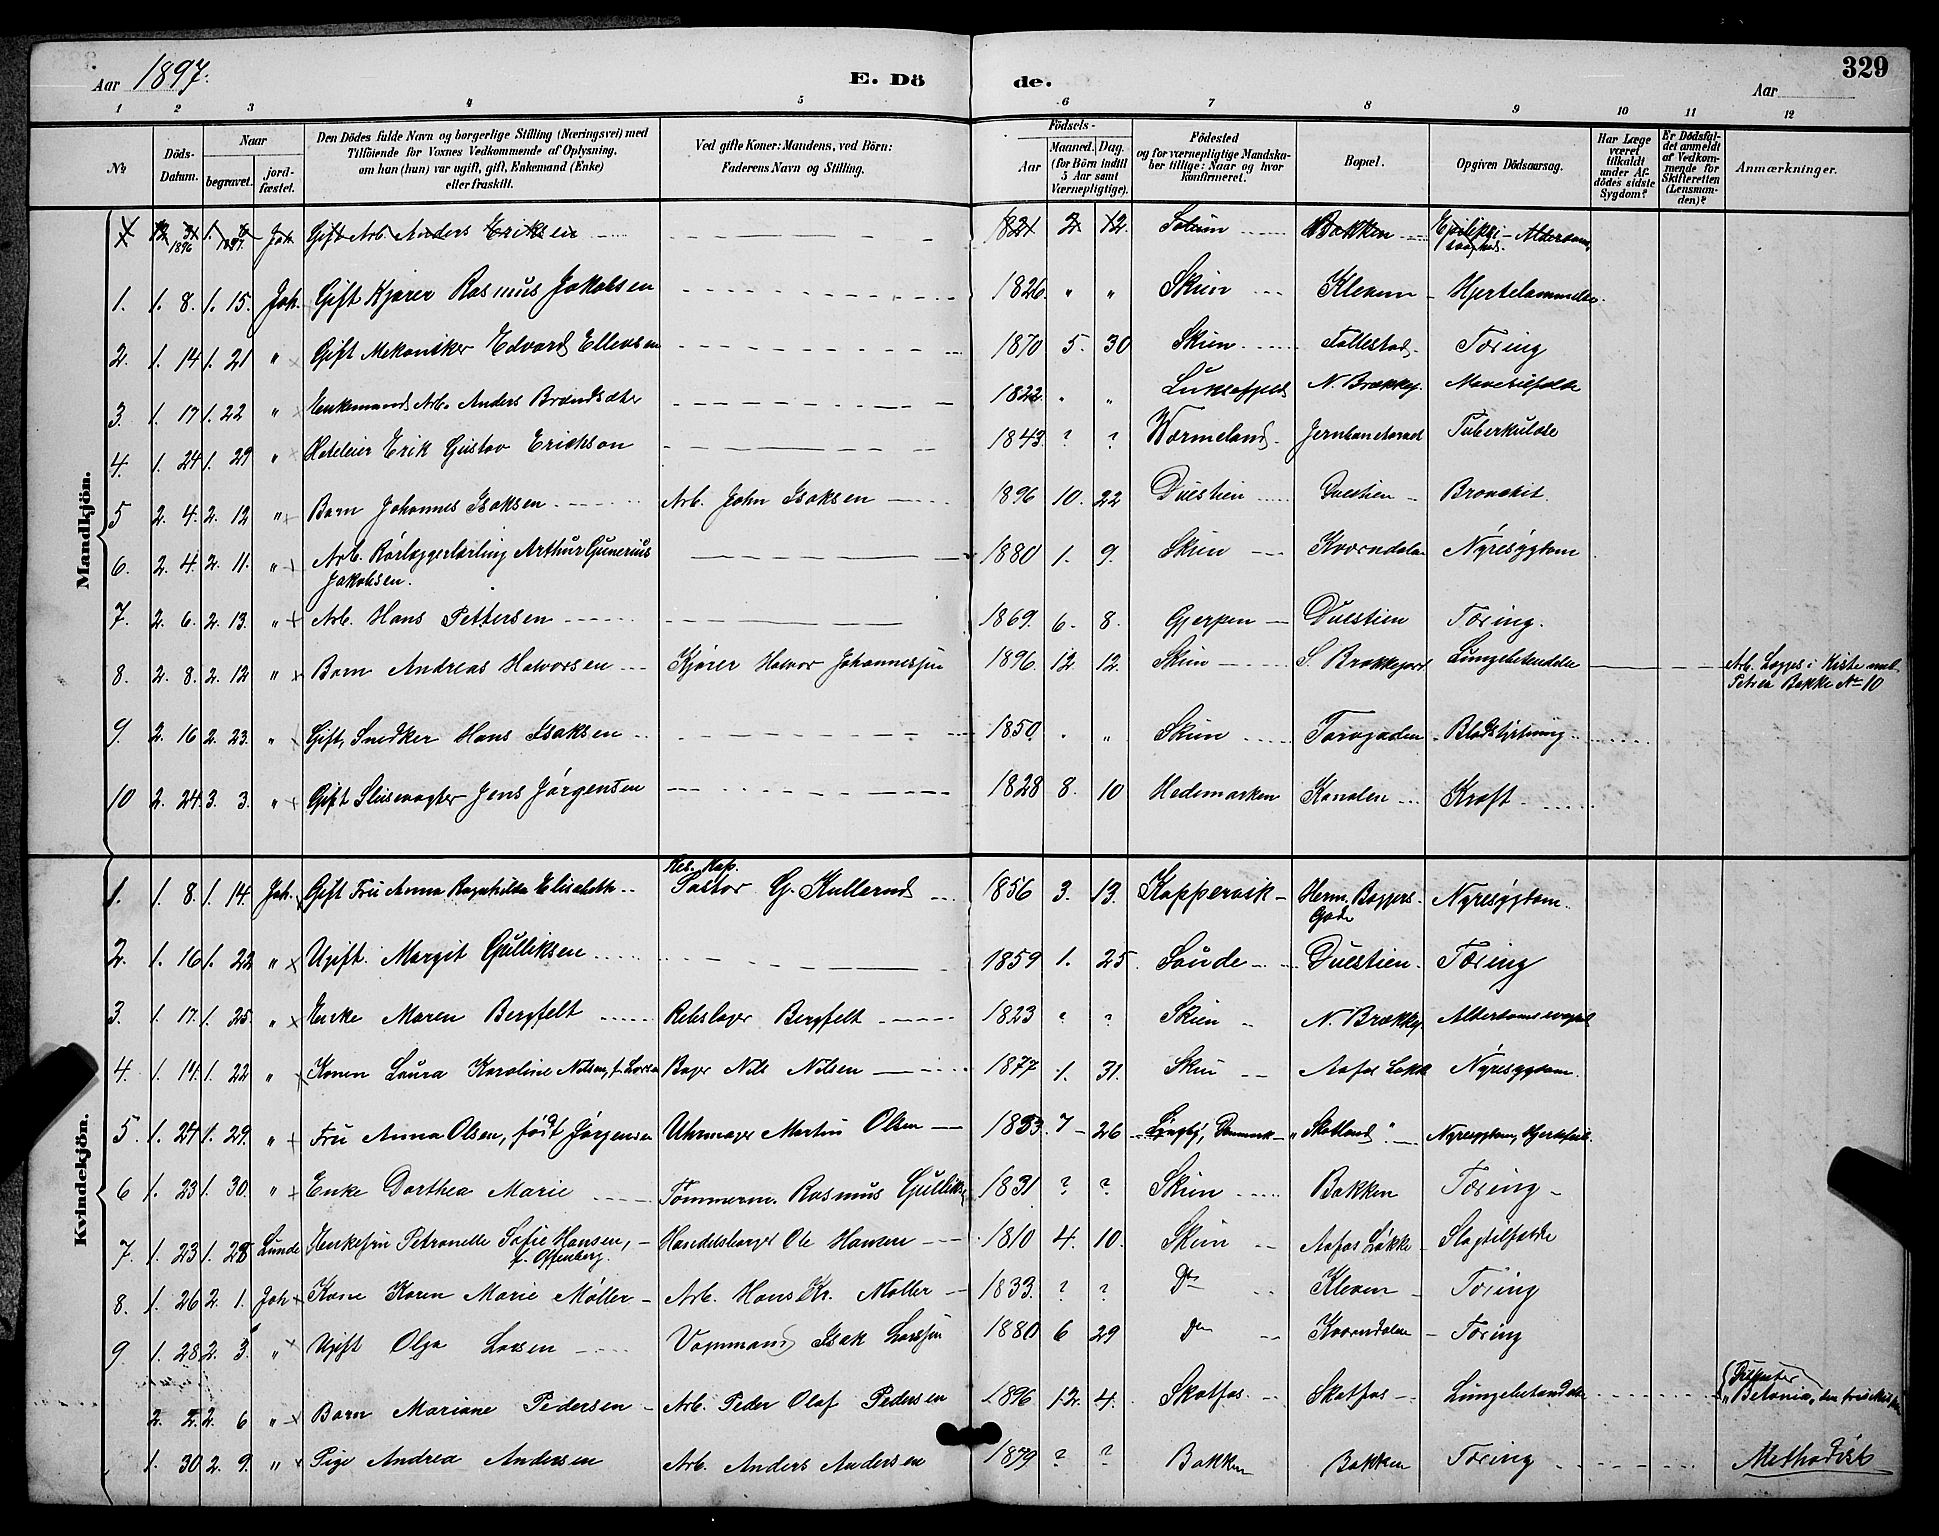 Aar 1897. E. Dö de. Aar 329
1 2 3 4 5 6 7 8 9 10 11 12
No Döds-Datum. Naar begravet. jord-fæstet. Den Dödes fulde Navn og borgerlige Stilling (Næringsvei) med Tilföiende for Voxnes Vedkommende af Oplysning, om han (hun) var ugift, gift, Enkemand (Enke) eller fraskilt. Ved gifte Koner: Mandens, ved Börn: Faderens Navn og Stilling. Födsels- Aar Maaned. Dag. (for Börn indtil 5 Aar samt Værnepligtige). Födested og for værnepligtige Mandskaber tillige: Naar og hvor konfirmeret. Bopæl. Opgiven Dödsaarsag. Har Læge været tilkaldt under Afdödes sidste Sygdom? Er Dödsfaldet anmeldt af Vedkommende for Skifteretten (Lensmanden)? Anmærkninger.
Mandkjön.
1896 1897. Joh. Gift Arb. Anders Eriksen 1821 2 12 Solum Bakken Alderdoms
1. 1. 8. 1. 15. Joh. Gift Kjører Rasmus Jakobsen 1826 " " Skien Kleven Hjertelammelse
2. 1. 14 1. 21 " Gift Mekaniker Edvard Ellevsen 1870 5. 30 Skien Follestad Tæring
3. 1. 17 1. 22 " Enkemand Arb. Anders Brændsæter 1822 " " Luksefjeld N. Brækkeg.
4. 1. 24 1. 29 " Hoteleier Erik Gustav Erickson 1843. ? ? Wærmeland Jernbanetorvet Tuberkulose
5 2. 4. 2. 12 " Barn Johannes Isaksen Arb. John Isaksen 1896 10. 22 Duestien Duestien Bronckit.
6. 2. 4. 2. 11. " Arb. Rørlæggerlærling Arthur Gunerius Jakobsen. 1880 1. 9. Skien Kverndalen Nyresygdom
7. 2. 6. 2. 13. " Arb. Hans Pettersen 1869. 6. 8. Gjerpen Duestien Tæring.
8. 2. 8. 2. 12 " Barn Andreas Halvorsen Kjører Halvor Johannessen 1896 12. 12. Skien S. Brækkegaden Lungebetændelse Arb. Lægges i Kiste med Petrea Bakke No 10
9. 2. 16 2. 23. " Gift, Snedker Hans Isaksen 1850. " " Skien Torvgaden Blodstyrtning
10 2. 24. 3. 3. " Gift Slusevogter Jens Jørgensen 1828 8. 10 Hedemarken Kanalen Kræft
Kvindekjön.
1. 1. 8. 1. 14. Joh. Gift Fru Anna Ragnhilda Elisabeth Res. Kap. Pastor G. Kullerud 1856 3. 13. Koppervik Herm. Baggers Gade Nyresygdom
2. 1. 16 1. 22 " Ugift. Margit Gulliksen 1859 1. 25. Saude Duestien Tæring
3. 1. 17. 1. 25. " Enke Maren Bergfelt Rebslager Bergfelt 1823 ? ? Skien N. Brækkeg. Alderdomssvaghed
4. 1. 14. 1. 22 " Konen Laura Karoline Nilsen, f. Larsen Bager Nils Nilsen 1877 1. 31. Skien Aafos Løkke Nyresygdom.
5. 1. 24 1. 29. " Fru Anna Olsen, født Jørgensen Uhrmager Martin Olsen 1853. 7 26 Lyngby, Danmark "Skotland" Nyresygdom, Hjertefeil
6 1. 23 1. 30. " Enke Dorthea Marie Tømmerm. Rasmus Gulliksen 1831 ? ? Skien Bakken Tæring
7. 1. 23 1. 28 Lunde Enkefru Petronelle Sofie Hansen, f. Offenberg Handelsborger Ole Hansen 1810 4. 10. Skien Aafos Løkke Slagtilfælde
8. 1. 26 2. 1. Joh Kone Karen Marie Møller Arb. Hans Kr. Møller 1833. ? ? Do Kleven Tæring
9. 1. 28 2. 3. " Ugift Olga Larsen Vognmand Isak Larssen 1880 6 29 Do Kverndalen Tæring
2. 2. 2. 6 " Barn Mariane Pedersen Arb. Peder Olaf Pedersen 1896 12. 4. Skotfos Skotfos Lungebetændelse "Betania"
1. 30 2. 9. " Pige Andrea Andersen Arb. Anders Andersen 1879 ? ? Bakken Bakken Tæring Methodist